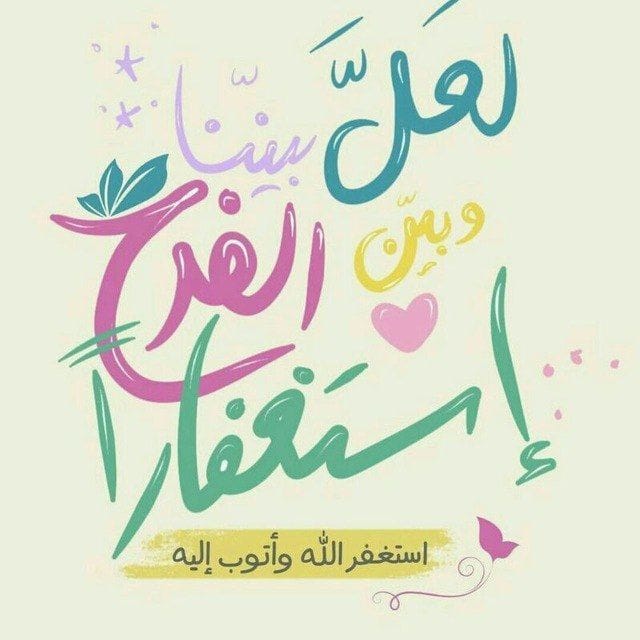 لعلَّ بيننّا
وبيّن الفرح
إستغفاراً
استغفر الله وأتوب إليه